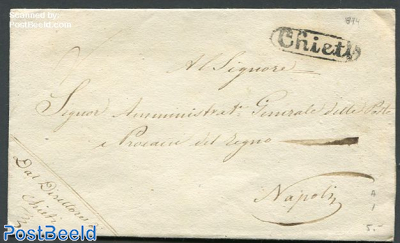 Scanned by
PostBeeld
Chieti
Al Signore
Signor Amministrat.e Generale delle Poste
e Procacci del Regno
Napoli
Dal Direttore
Chieti
5.-
PostBeeld